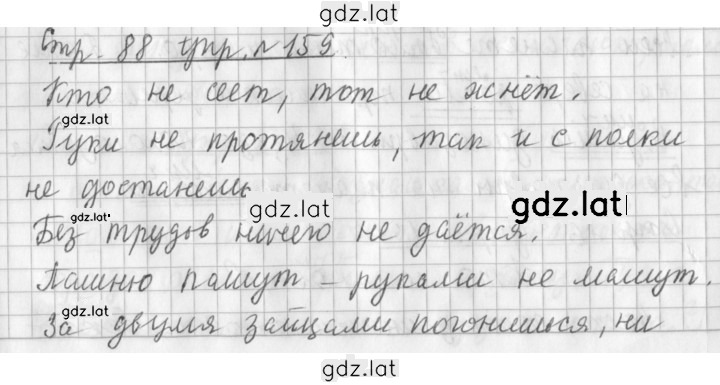 gdz.lat
Стр. 88 упр. № 159.
Кто не сеет, тот не жнёт.
gdz.lat
Руки не протянешь, так и с полки
не достанешь
gdz.lat
gdz.lat
Без трудов ничего не даётся.
Пашню пашут – руками не машут.
gdz.lat
За двумя зайцами погонишься, ни
gdz.lat